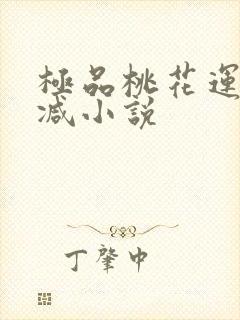 極品桃花運
减小説
丁肇中